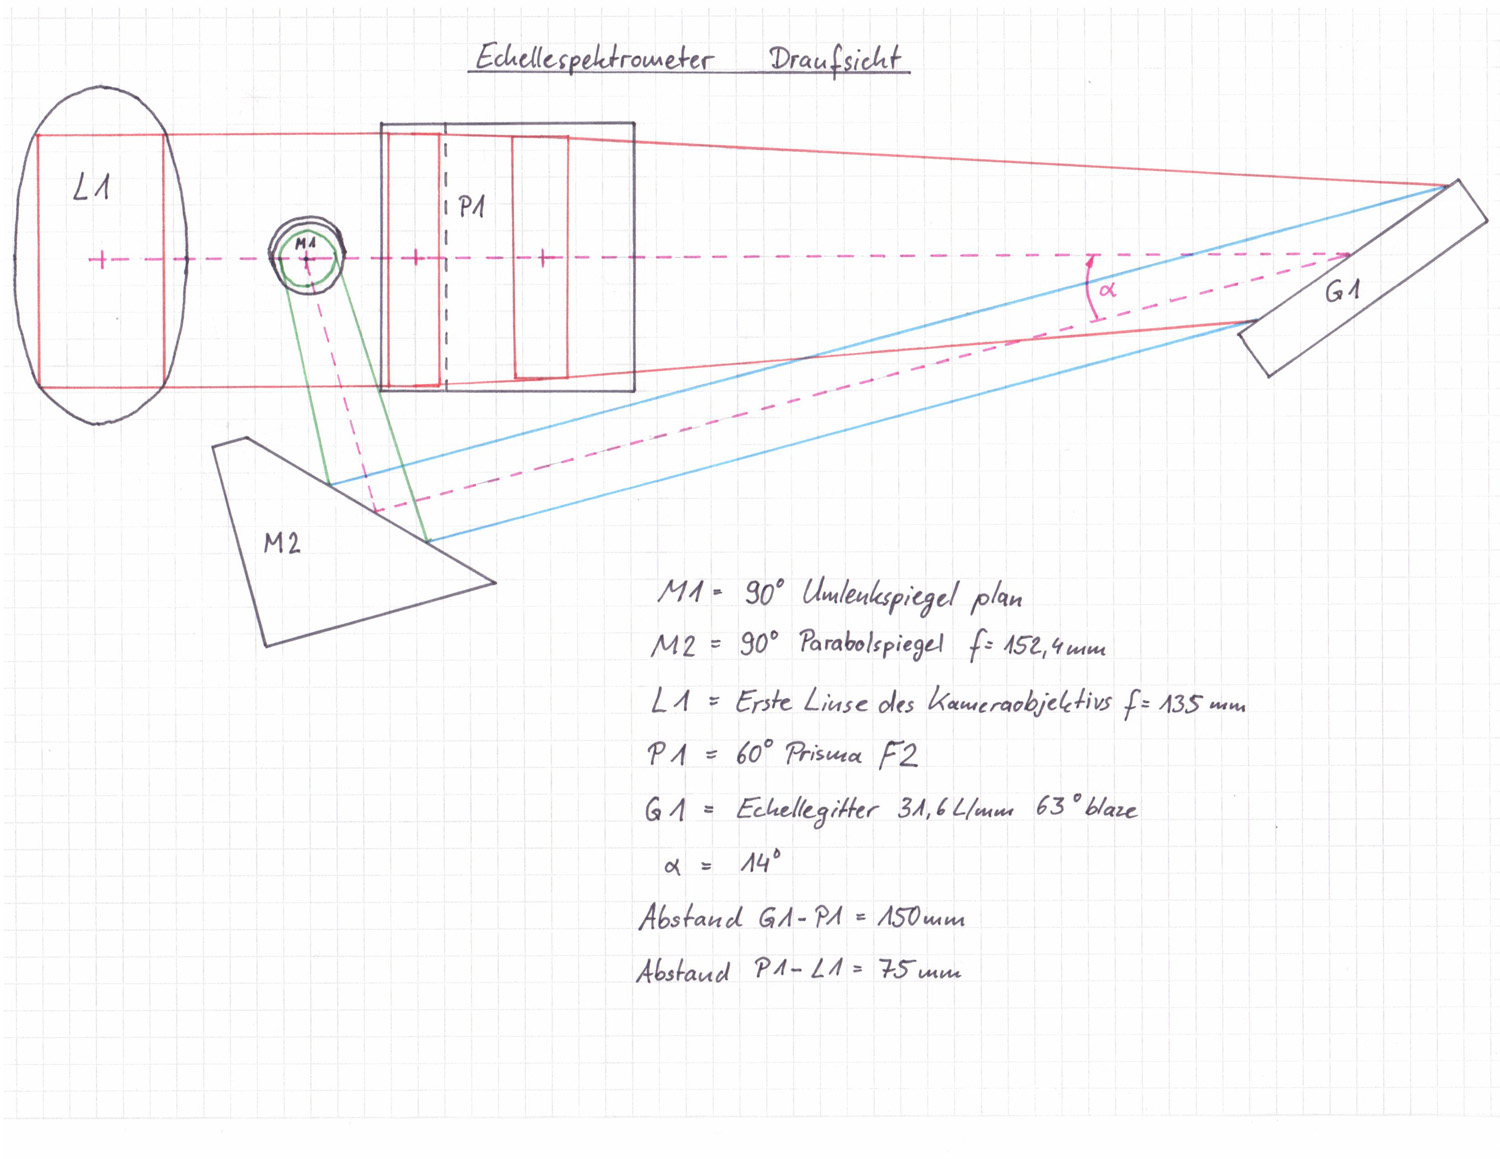 Echellespektrometer Draufsicht
L1
M1
P1
α
G1
M2
M1 = 90° Umlenkspiegel plan
M2 = 90° Parabolspiegel f= 152,4mm
L1 = Erste Linse des Kameraobjektivs f= 135mm
P1 = 60° Prisma F2
G1 = Echellegitter 31,6L/mm 63° blaze
α = 14°
Abstand G1-P1 = 150mm
Abstand P1-L1 = 75mm